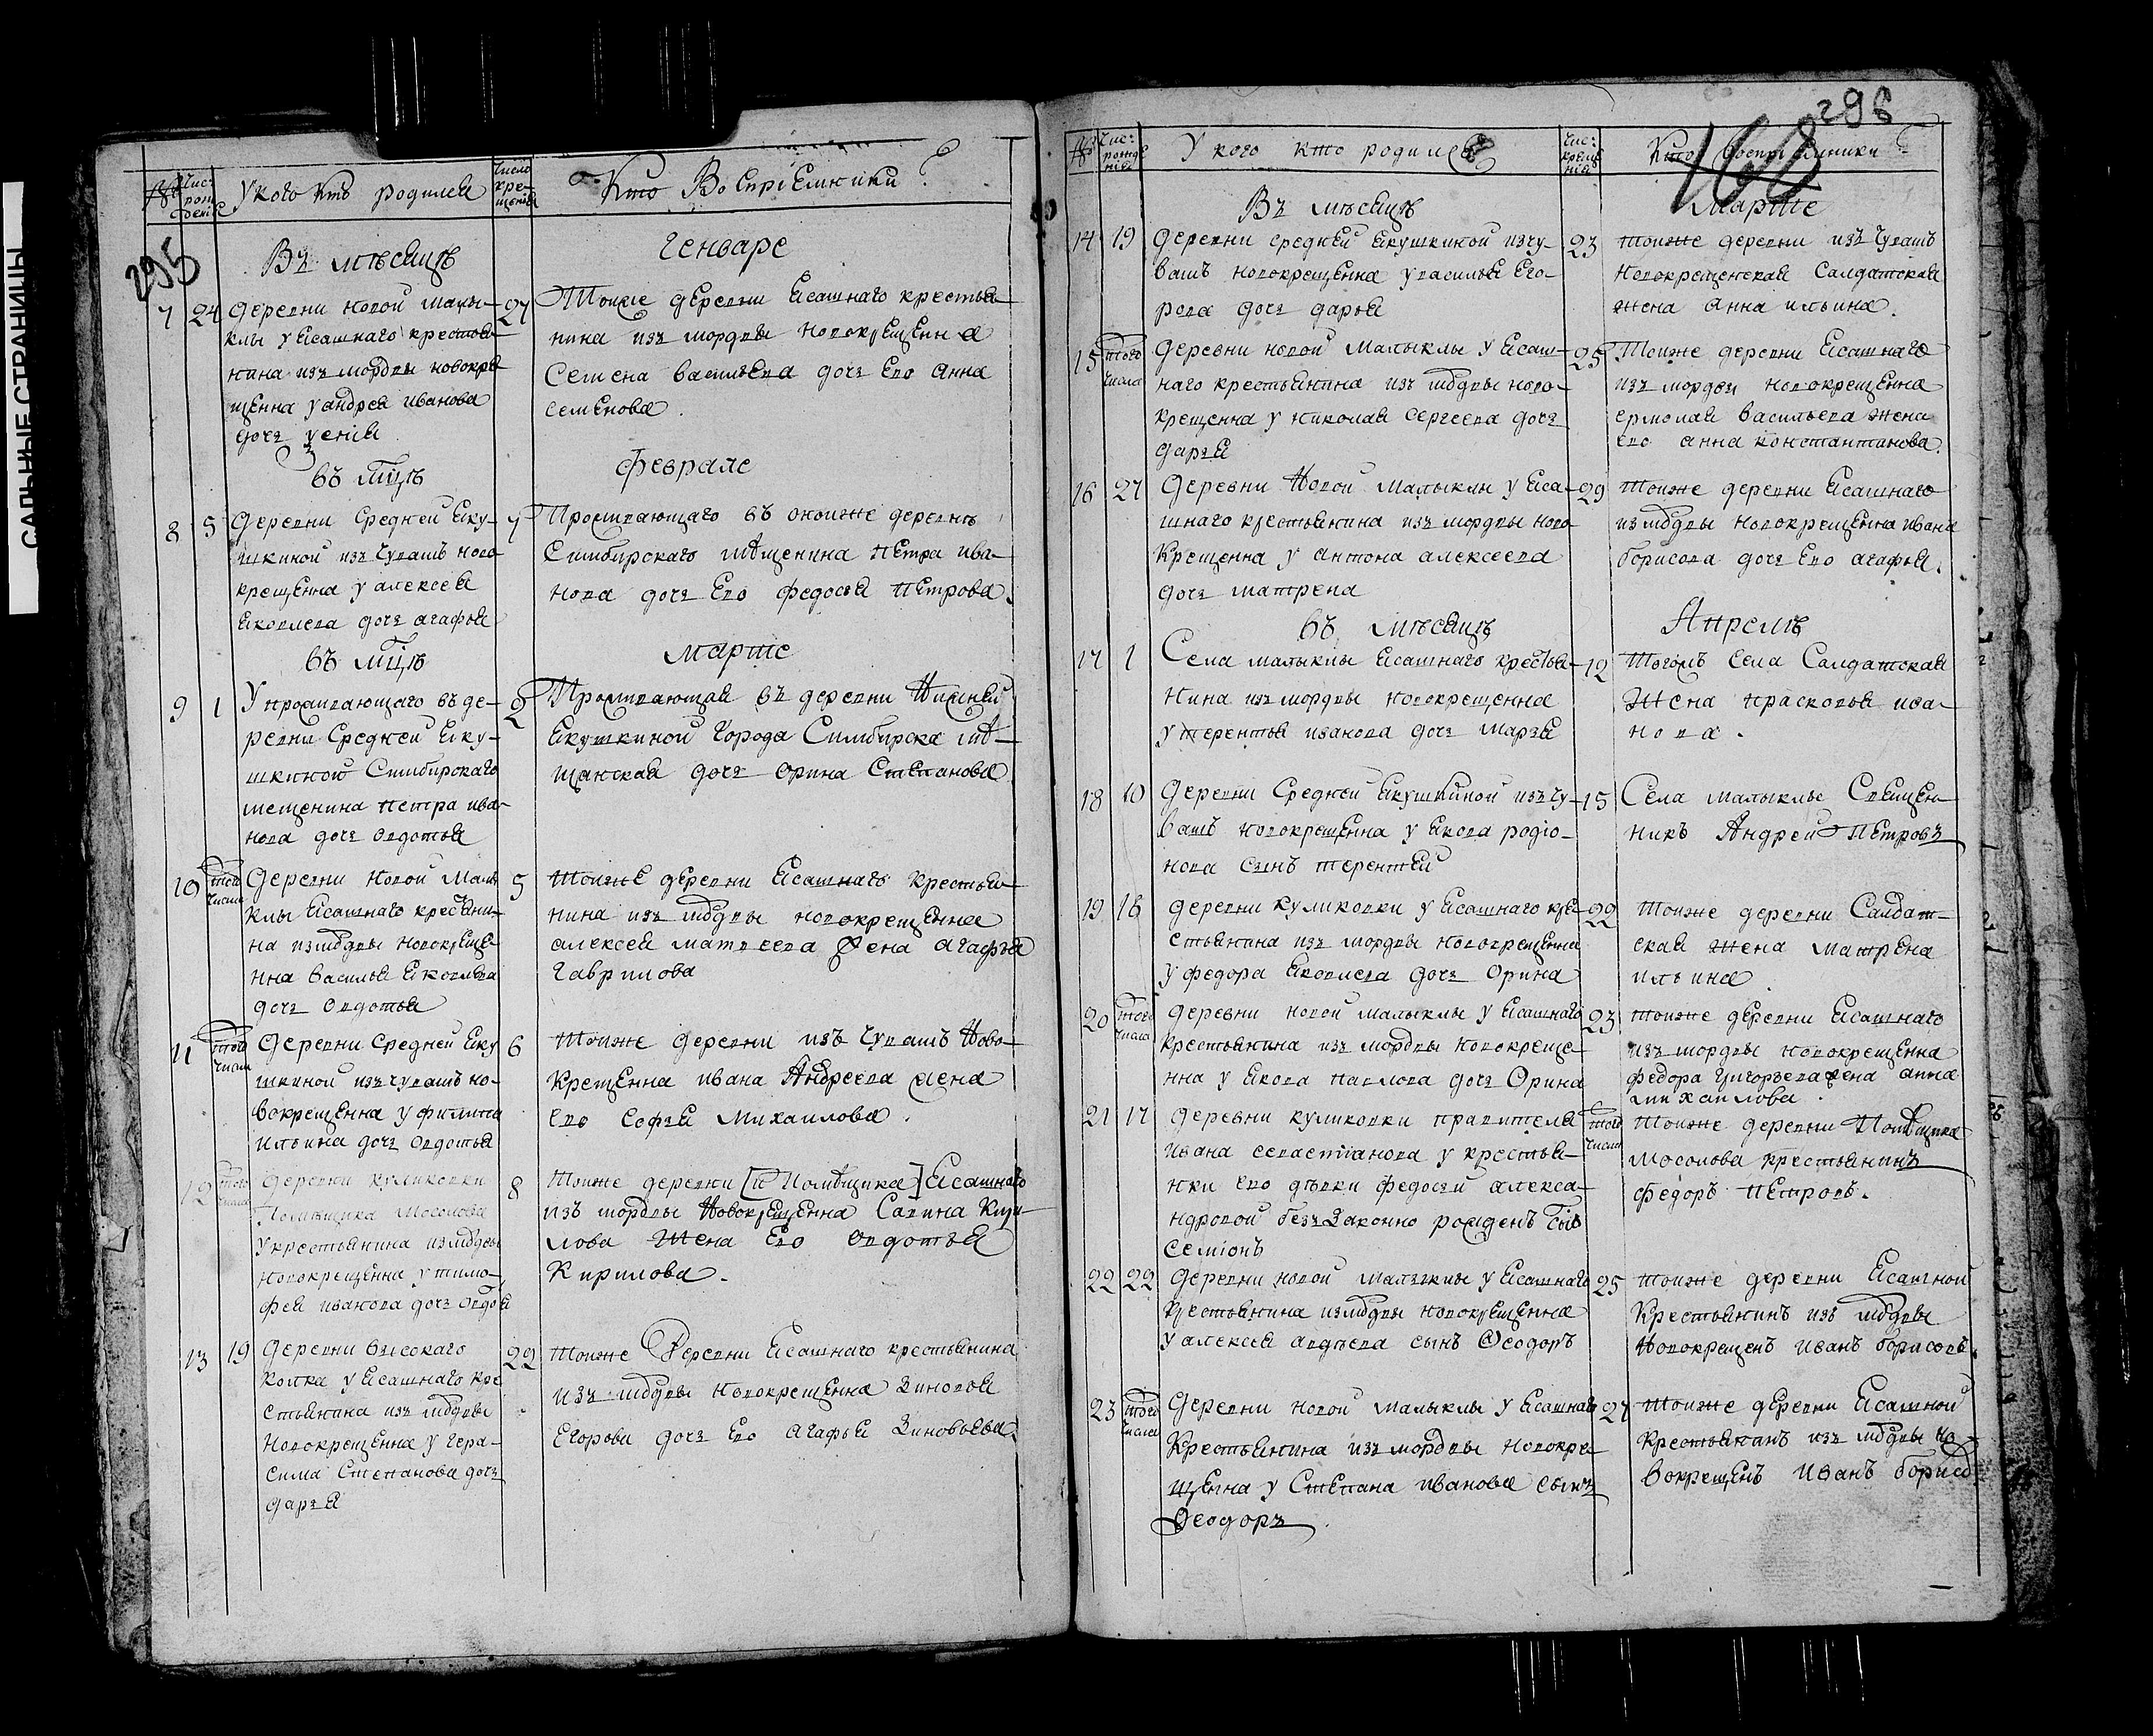 САЛЬНЫЕ СТРАНИЦЫ
295
№
Чис:
рож
дения
У кого кто родился
Число
кре-
щения
Кто Восприемники ?
Въ мѣсяцѣ Генваре
7 24 деревни новой малы-
клы у ясашнаго крестья-
нина изъ мордвы новокре
щенна у андрея иванова
дочь ѯенія
27 Тояже деревни ясашнаго крестья-
нина изъ мордвы новокрещенна
Семена васильева дочь его анна
семенова.
въ мцѣ Феврале
8 5 Деревни Средней Яку-
шкиной изъ чувашъ ново
крещенна у алексея
яковлева дочь агафья
7 Проживающаго въ оноиже деревнѣ
Симбирскаго мѣщенина петра ива-
нова дочь его федосья петрова.
въ мцѣ марте
9 1 У проживающаго въ де-
ревни Средней Яку-
шкиной Симбирскаго
мещенина петра ива-
нова дочь овдотья
2 Проживающая въ деревни Нижней
Якушкиной города Симбирска мѣ-
щанская дочь орина Степанова
10 того
числа
Деревни новой Малы
клы ясашнаго крестьяни-
на из мдвы новокреще-
нна василья яковлева
дочь овдотья
5 Тоиже деревни ясашнаго крестья-
нина изъ мдвы новокрещенна
алексея матвеева жена агафья
гаврилова
11 того
числа
Деревни Средней яку
шкиной изъ чувашъ но-
вокрещенна у филипа
ильина дочь овдотья
6 Тоиже деревни изъ чувашъ Ново-
крещенна ивана Андреева жена
его софья михаилова.
12 того
числа
Деревни куликовки
Помѣщика Мосолова
У крестьянина из мдвы
новокрещенна у тимо-
фея иванова дочь овдо я
8 Тоиже деревни [и Помѣщика] Ясашнаго
изъ мордвы Новокрещенна Савина Кири-
лова Жена его овдотья
Кирилова.
13 19 Деревни высокаго
колка у ясашнаго кре
стьянина изъ мдвы
новокрещенна у гера-
сима Степанова дочь
дарья
22 Тоиже Деревни ясашнаго крестьянина
изъ мдвы новокрещенна Зиновья
Егорова дочь его агафья Зиновьева.
296
160
№
Чис:
рожде
ния
У кого кто родился
Чис:
креще
ния
Кто Восприемники ?
Въ мѣсяцѣ Марте
14 19 Деревни средней якушкиной изъ чу-
вашъ новокрещенна у василья Его-
рова дочь дарья
23 Тоиже деревни изъ чувашъ
новокрещенская Салдатская
жена анна ильина.
15 того
числа
Деревни новой Малыклы у ясаш-
наго крестьянина изъ мдвы ново-
крещенна у николая сергеева дочь
дарья
25 Тоиже деревни ясашнаго
изъ мордвы новокрещенна
ермолая васильева жена
его анна константинова.
16 27 Деревни Новой Малыклы у яса-
шнаго крестьянина изъ мордвы ново
крещенна у антона алексеева
дочь матрена
29 Тоиже деревни ясашнаго
из мдвы новокрещенна ивана
борисова дочь его агафья.
въ мѣсяцѣ Апрелѣ
17 1 Села малыклы ясашнаго крестья-
нина изъ мордвы новокрещенна
у терентья иванова дочь марья
12 Тогожъ села Салдатская
Жена прасковья ива-
нова.
18 10 Деревни Средней якушкиной изъ чу-
вашъ новокрещенна у якова родіо-
нова сынъ терентей
15 Села малыклы Священ-
никъ Андрей Петровъ
19 16 деревни куликовки у ясашнаго кре-
стьянина изъ мордвы новокрещенна
у федора яковлева дочь Орина
22 Тоиже деревни Салдат-
ская жена матрена
ильина.
20 того
числа
деревни новой малыклы у ясашнаго
крестьянина изъ мордвы новокреще-
нна у якова павлова дочь Орина
23 Тоиже деревни ясашнаго
изъ мордвы новокрещенна
федора григорьева жена анна
михаилова.
21 17 деревни куликовки правителя
ивана севастіанова у крестья-
нки его дѣвки федосьи алекса-
ндровой беззаконно рожденъ сын
семіонъ
того
числа
Тоиже деревни Помѣщика
мосолова крестьянинъ
федоръ петровъ.
22 22 деревни новой малыклы у ясашнаго
крестьянина из мдвы новокрещенна
у алексея авдѣева сынъ Ѳеодоръ
25 Тоиже деревни ясашной
крестьянинъ изъ мдвы
новокрещенъ иванъ борисовъ.
23 того
числа
Деревни новой малыклы у ясашнаго
крестьянина изъ мордвы новокре-
щенна у Степана иванова сынъ
Ѳеодоръ.
27 Тоиже деревни ясашной
крестьянинъ изъ мдвы но-
вокрещенъ иванъ борисо